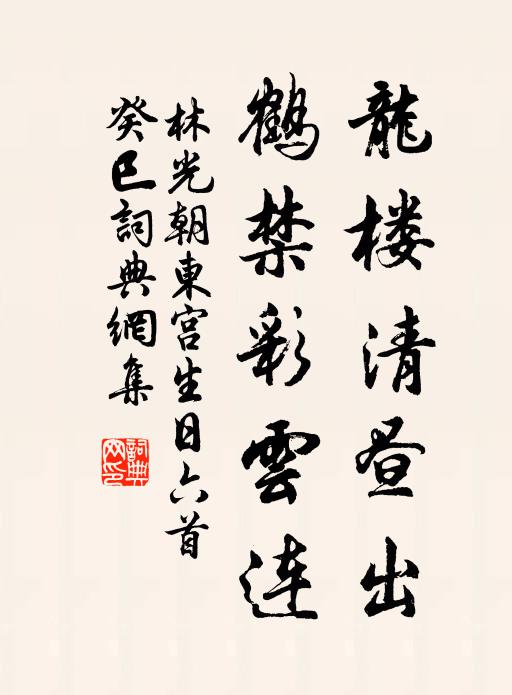 龍楼清昼出
鶴禁彩雲連
林光朝東宮生日六首
癸巳詞典網集
詞典网印